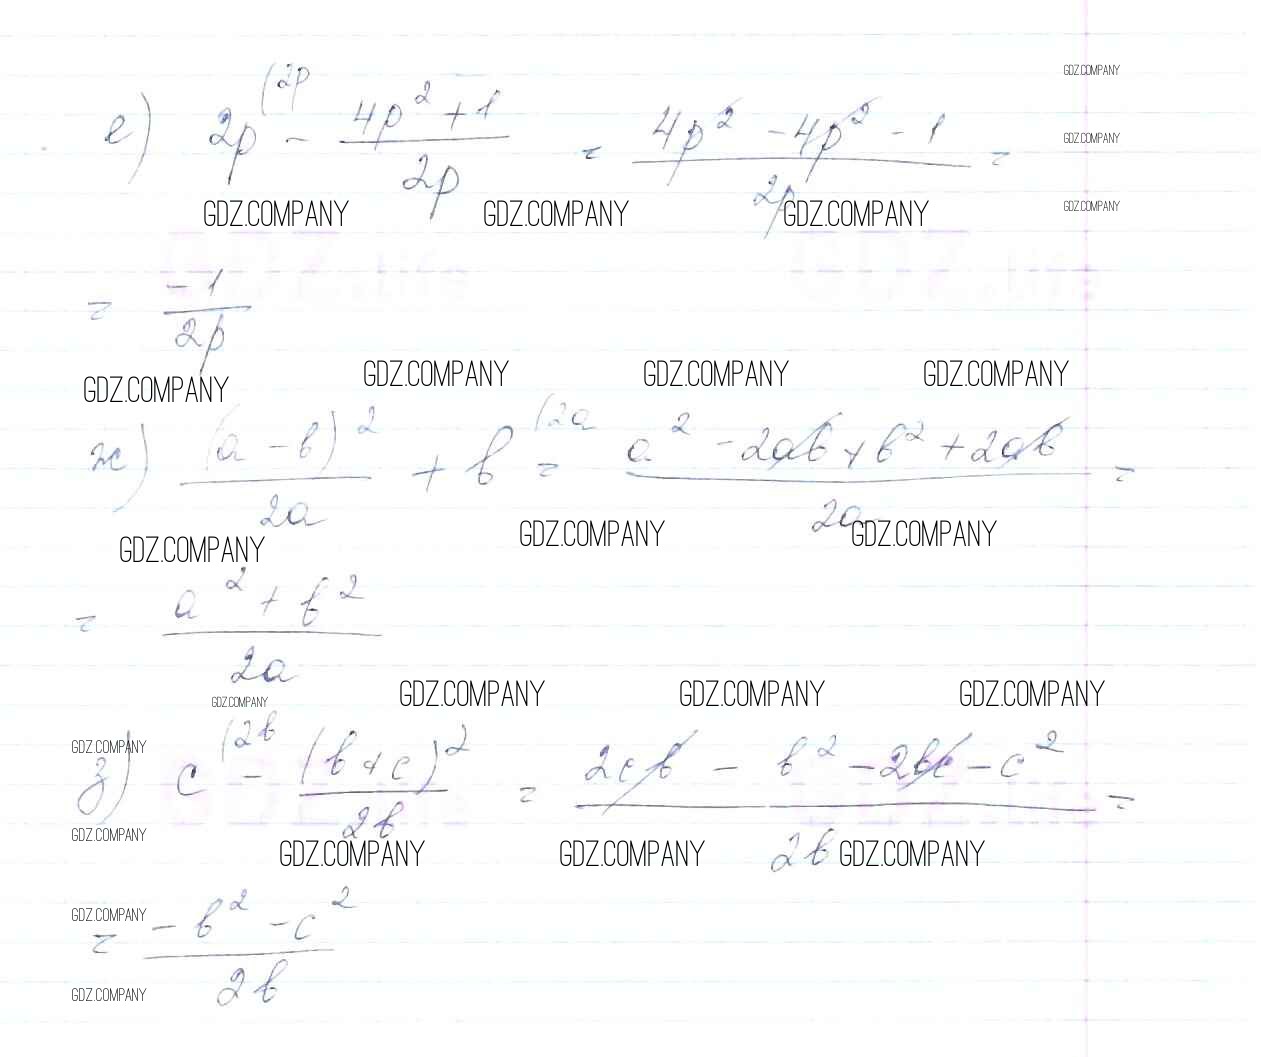 е) 2p (2p - (4p² + 1)/(2p) = (4p² - 4p² - 1)/(2p) =
GDZ.COMPANY GDZ.COMPANY GDZ.COMPANY
GDZ.COMPANY
GDZ.COMPANY
GDZ.COMPANY
GDZ.Life GDZ.Life
= -1/(2p)
GDZ.COMPANY GDZ.COMPANY GDZ.COMPANY GDZ.COMPANY
ж) (a - b)²/(2a) + b (2a = (a² - 2ab + b² + 2ab)/(2a) =
GDZ.COMPANY GDZ.COMPANY GDZ.COMPANY
= (a² + b²)/(2a)
GDZ.COMPANY GDZ.COMPANY GDZ.COMPANY GDZ.COMPANY
GDZ.COMPANY
з) c (2b - (b + c)²/(2b) = (2cb - b² - 2bc - c²)/(2b) =
GDZ.COMPANY
GDZ.COMPANY GDZ.COMPANY GDZ.COMPANY
GDZ.COMPANY
= (-b² - c²)/(2b)
GDZ.COMPANY